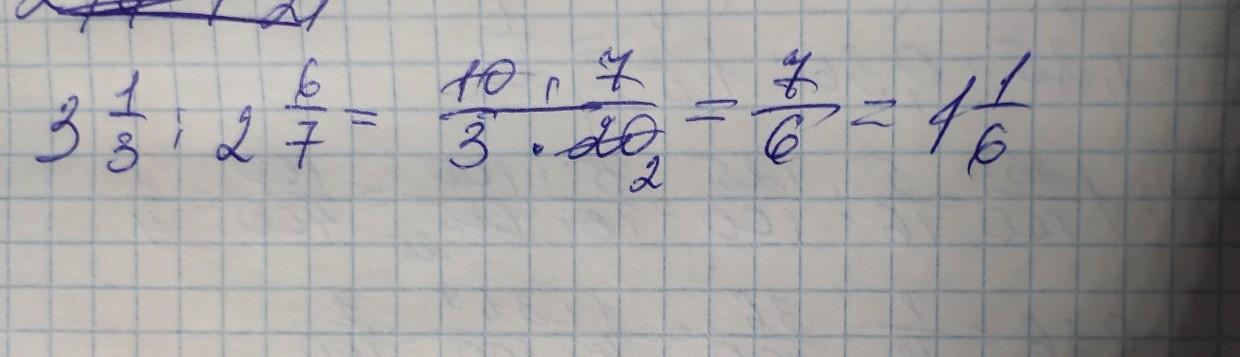 3 1/3 : 2 6/7 = 10 · 7 / 3 · 20 2 = 7/6 = 1 1/6